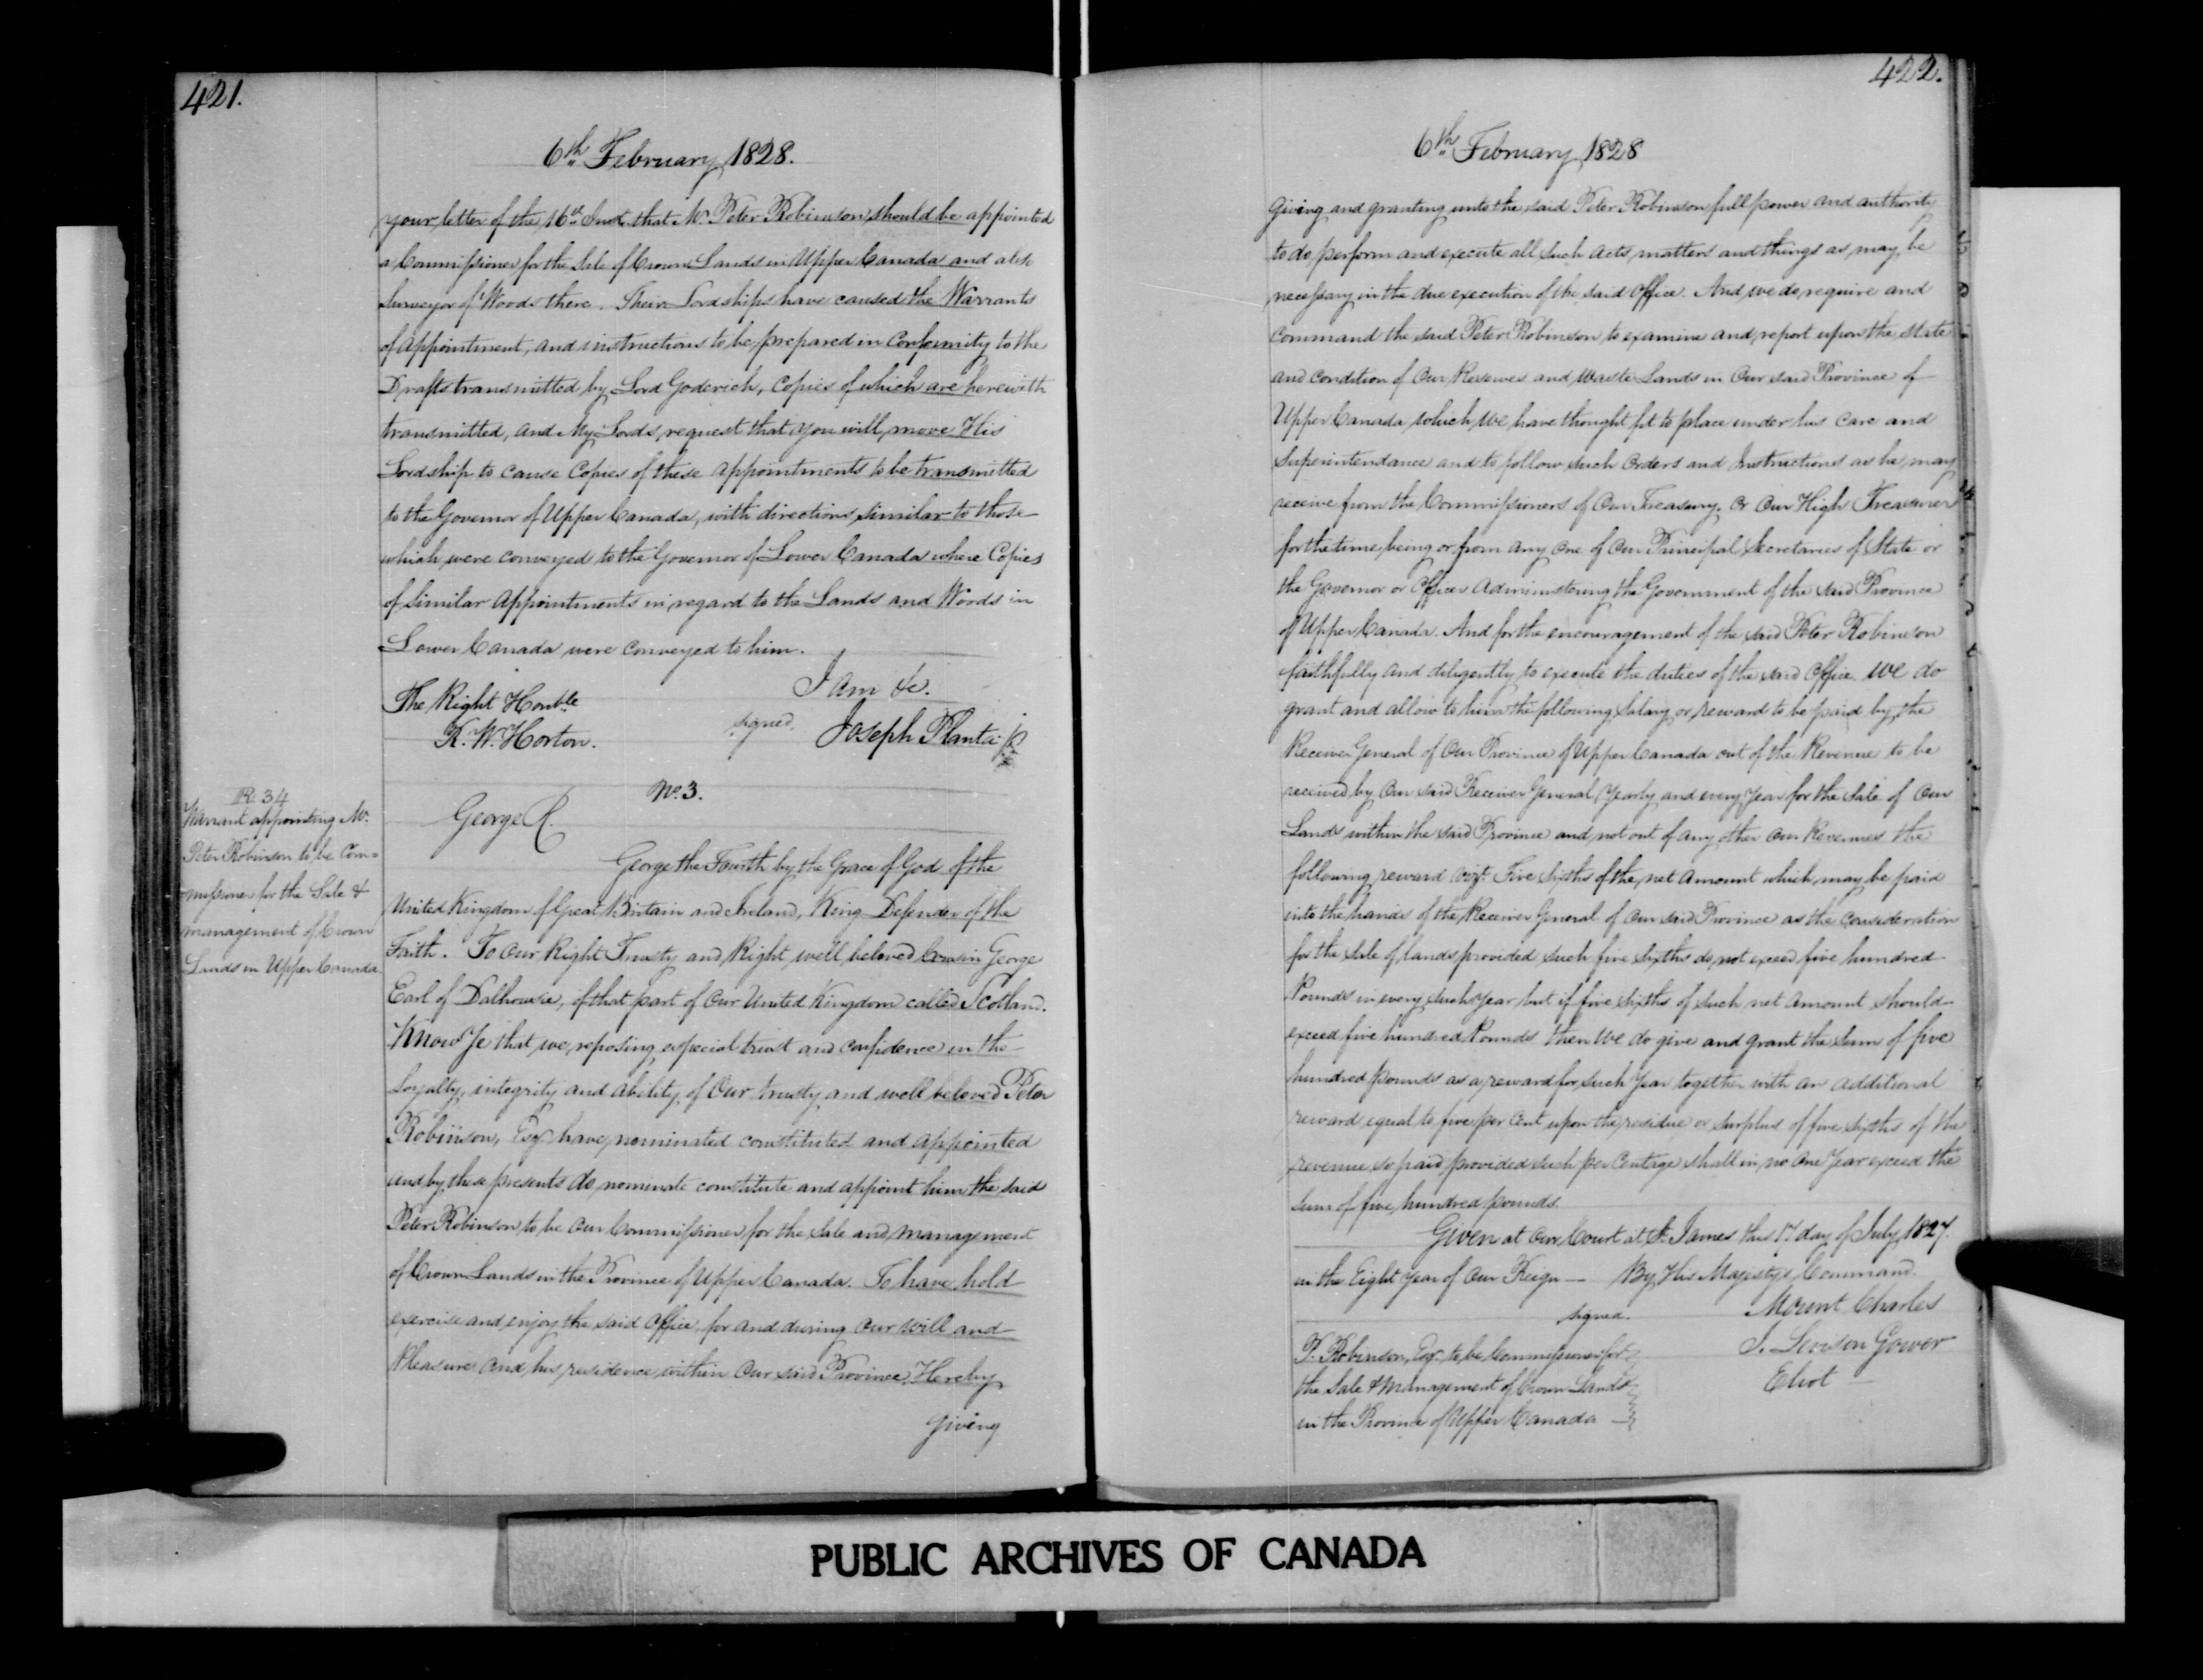 421.
6th February 1828.
your letter of the 16th Inst. that Mr Peter Robinson should be appointed
a Commissioner for the Sale of Crown Lands in Upper Canada and also
Surveyor of Woods there. Their Lordships have caused the Warrants
of Appointment, and instructions to be prepared in Conformity to the
Drafts transmitted by Lord Goderich, Copies of which are herewith
transmitted, and My Lords request that you will move His
Lordship to cause Copies of these appointments to be transmitted
to the Governor of Upper Canada, with directions similar to those
which were conveyed to the Governor of Lower Canada where Copies
of similar Appointments in regard to the Lands and Woods in
Lower Canada were conveyed to him.
I am &c.
The Right Honble
R. W. Horton.
signed. Joseph Planta Jr
No. 3.
R. 34
Warrant appointing Mr.
Peter Robinson to be Com=
missioner for the Sale &
management of Crown
Lands in Upper Canada
George R.
George the Fourth by the Grace of God of the
United Kingdom of Great Britain and Ireland, King Defender of the
Faith. To Our Right Trusty and Right well beloved Cousin George
Earl of Dalhousie, of that part of Our United Kingdom called Scotland.
Know Ye that we, reposing especial trust and confidence in the
Loyalty, integrity and ability of Our trusty and well beloved Peter
Robinson, Esqr have nominated constituted and appointed
and by these presents do nominate constitute and appoint him the said
Peter Robinson to be Our Commissioner for the Sale and management
of Crown Lands in the Province of Upper Canada. To have hold
exercise and enjoy the said Office, for and during our will and
Pleasure and his residence within Our said Province, Hereby
giving
422.
6th February 1828
Giving and granting unto the said Peter Robinson full power and authority
to do, perform and execute all such acts, matters and things as may be
necessary in the due execution of the said Office. And we do require and
command the said Peter Robinson to examine and report upon the state
and condition of Our Reserves and Waste Lands in Our said Province of
Upper Canada which we have thought fit to place under his care and
Superintendance and to follow such Orders and Instructions as he may
receive from the Commissioners of Our Treasury, or Our High Treasurer
for the time being or from any one of Our Principal Secretaries of State or
the Governor or Officer Administering the Government of the said Province
of Upper Canada. And for the encouragement of the said Peter Robinson
faithfully and diligently to execute the duties of the said Office We do
grant and allow to him the following Salary or reward to be paid by the
Receiver General of Our Province of Upper Canada out of the Revenue to be
received by Our said Receiver General Yearly and every Year for the Sale of Our
Lands within the said Province and not out of any other Our Revenues the
following reward vizt. Five Sixths of the net Amount which may be paid
into the hands of the Receiver General of Our said Province as the Consideration
for the Sale of lands provided such five sixths do not exceed five hundred
Pounds in every such Year but if five Sixths of such net Amount should
exceed five hundred Pounds then We do give and grant the Sum of five
hundred pounds as a reward for such Year together with an additional
reward equal to five per Cent upon the residue or Surplus of five sixths of the
revenue so paid provided such per Centage shall in no one Year exceed the
sum of five hundred pounds.
Given at Our Court at St. James this 17 day of July 1827.
in the Eight Year of Our Reign — By His Majestys Command.
signed. Mount Charles
J. Leveson Gower
Eliot —
P. Robinson, Esqr. to be Commissioner for
the Sale & Management of Crown Lands
in the Province of Upper Canada —
PUBLIC ARCHIVES OF CANADA